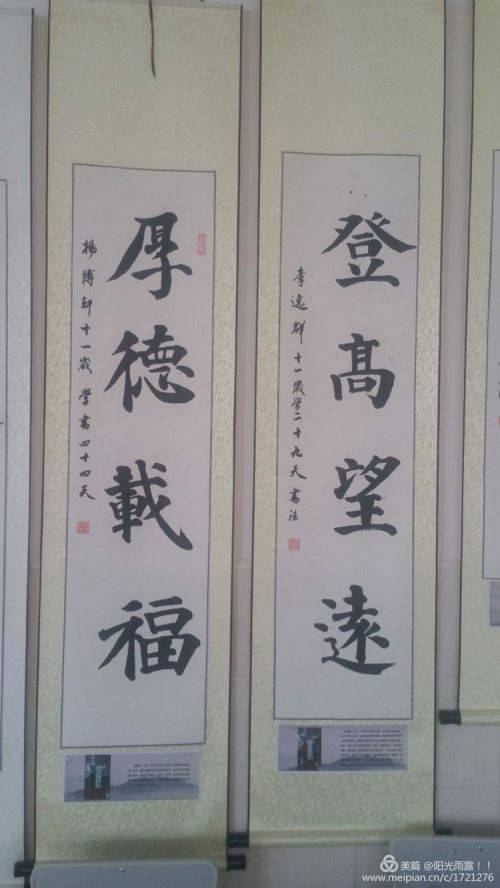 厚德載福
楊博軒十一歲學書四十四天
登高望遠
李逸群十一歲學二十九天書法
美篇 @阳光雨露！！
www.meipian.cn/c/1721276